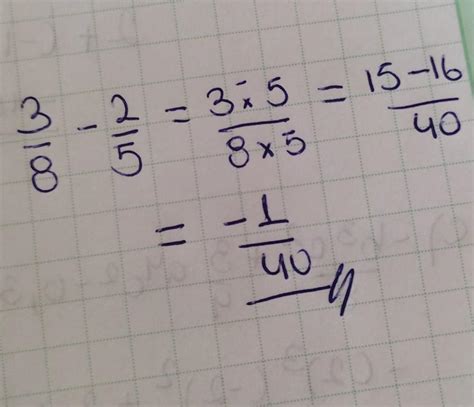 3/8 - 2/5 = 3 × 5/8 × 5 = 15-16/40
= -1/40